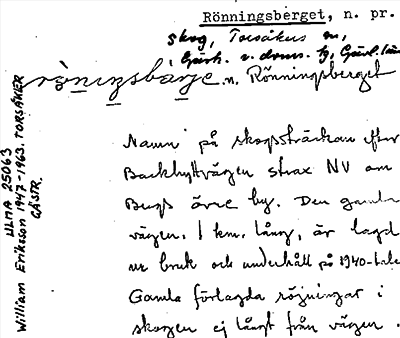 Rönningsberget, n. pr.
skog, Torsåkers sn,
Gästr. v. doms. hg, Gävl. län
röningsbärje n. Rönningsberget
Namn på skogssträckan efter
Backhyttvägen strax NV om
Bergs övre by. Den gamla
vägen, 1 km. lång, är lagd
ur bruk och underhåll på 1940-tale
Gamla förlagda röjningar i
skogen ej långt från vägen.
ULMA 25063
William Eriksson 1947-1963. TORSÅKER
GÄSTR.